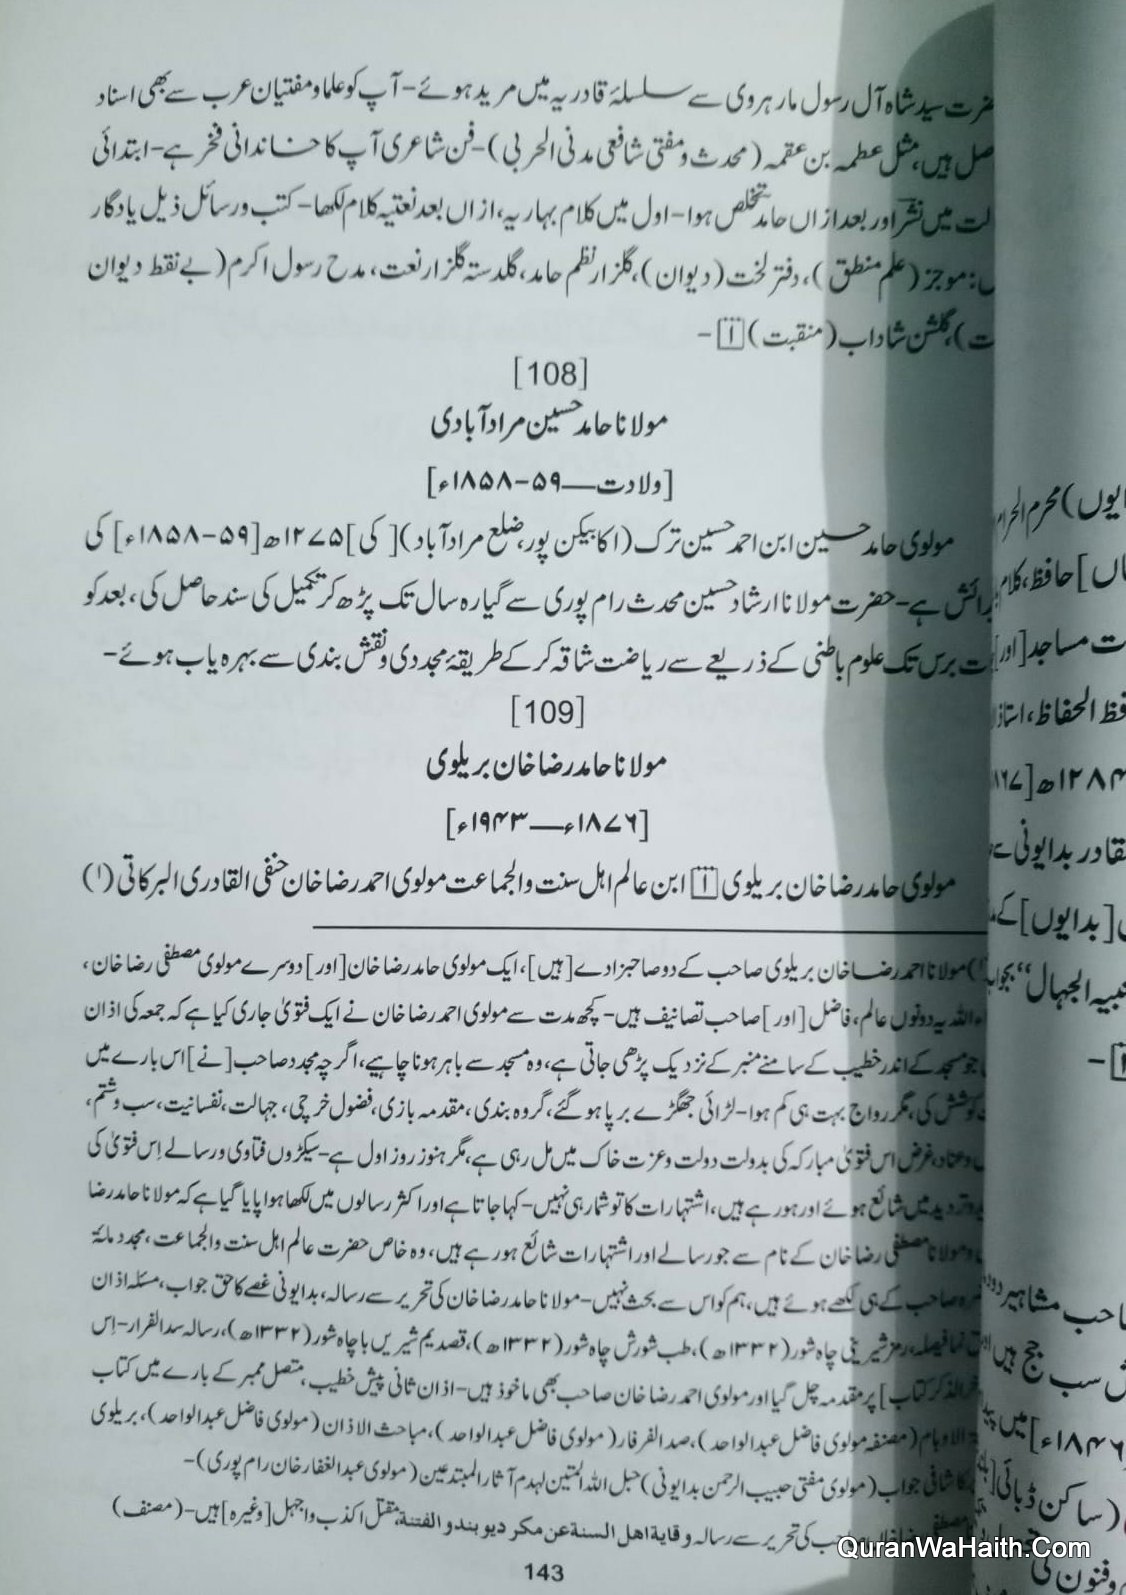 حضرت سید شاہ آل رسول مارہروی سے سلسلۂ قادریہ میں مرید ہوئے- آپ کو علما و مفتیان عرب سے بھی اسناد
حاصل ہیں، مثل عطمہ بن عقمہ (محدث و مفتی شافعی مدنی الحربی)- فن شاعری آپ کا خاندانی فخر ہے- ابتدائی
میں نشتر اور بعد ازاں حامد تخلص ہوا- اول میں کلام بہاریہ، ازاں بعد نعتیہ کلام لکھا- کتب و رسائل ذیل یادگار
موجز (علم منطق)، دفتر لخت (دیوان)، گلزار نظم حامد، گلدستہ گلزار نعت، مدح رسول اکرم (بے نقط دیوان
گلشن شاداب (منقبت) [۱]-
[108]
مولانا حامد حسین مراد آبادی
[ولادت—۵۹-۱۸۵۸ء]
مولوی حامد حسین ابن احمد حسین ترک (اکابیکن پور، ضلع مراد آباد) [کی] ۱۲۷۵ھ [۵۹-۱۸۵۸ء] کی
پیدائش ہے- حضرت مولانا ارشاد حسین محدث رام پوری سے گیارہ سال تک پڑھ کر تکمیل کی سند حاصل کی، بعد کو
برس تک علوم باطنی کے ذریعے سے ریاضت شاقہ کر کے طریقۂ مجددی و نقش بندی سے بہرہ یاب ہوئے-
[109]
مولانا حامد رضا خان بریلوی
[۱۸۷۶ء—۱۹۴۳ء]
مولوی حامد رضا خان بریلوی [۱] ابن عالم اہل سنت والجماعت مولوی احمد رضا خان حنفی القادری البرکاتی (۱)
مولانا احمد رضا خان بریلوی صاحب کے دو صاحبزادے [ہیں]، ایک مولوی حامد رضا خان [اور] دوسرے مولوی مصطفی رضا خان،
اللہ یہ دونوں عالم، فاضل [اور] صاحب تصانیف ہیں- کچھ مدت سے مولوی احمد رضا خان نے ایک فتویٰ جاری کیا ہے کہ جمعہ کی اذان
جو مسجد کے اندر خطیب کے سامنے منبر کے نزدیک پڑھی جاتی ہے، وہ مسجد سے باہر ہونا چاہیے، اگرچہ مجدد صاحب [نے] اس بارے میں
کوشش کی، مگر رواج بہت ہی کم ہوا- لڑائی جھگڑے برپا ہو گئے، گروہ بندی، مقدمہ بازی، فضول خرچی، جہالت، نفسانیت، سب و شتم،
و عناد، غرض اس فتویٰ مبارکہ کی بدولت دولت و عزت خاک میں مل رہی ہے، مگر ہنوز روز اول ہے- سیکڑوں فتاوی و رسالے اِس فتویٰ کی
تردید میں شائع ہوئے اور ہو رہے ہیں، اشتہارات کا تو شمار ہی نہیں- کہا جاتا ہے اور اکثر رسالوں میں لکھا ہوا پایا گیا ہے کہ مولانا حامد رضا
و مولانا مصطفی رضا خان کے نام سے جو رسالے اور اشتہارات شائع ہو رہے ہیں، وہ خاص حضرت عالم اہل سنت والجماعت، مجدد مائۃ
صاحب کے ہی لکھے ہوئے ہیں، ہم کو اس سے بحث نہیں- مولانا حامد رضا خان کی تحریر سے رسالہ، بدایونی غصے کا حق جواب، مسئلہ اذان
نما فیصلہ، رمز شیرینی چاہ شور (۱۳۳۲ھ)، طب شورش چاہ شور (۱۳۳۲ھ)، قصدیم شیریں با چاہ شور (۱۳۳۲ھ)، رسالہ سد الفرار- اِس
الذکر کتاب] پر مقدمہ چل گیا اور مولوی احمد رضا خان صاحب بھی ماخوذ ہیں- اذان ثانی پیش خطیب، متصل ممبر کے بارے میں کتاب
(مصنفہ مولوی فاضل عبدالواحد)، صد الفرفار (مولوی فاضل عبدالواحد)، مباحث الاذان (مولوی فاضل عبدالواحد)، بریلوی
کا شافی جواب (مولوی مفتی حبیب الرحمن بدایونی) حبل اللہ المتین لہدم آثار المبتدعین (مولوی عبدالغفار خان رام پوری)-
کی تحریر سے رسالہ وقایة اهل السنة عن مكر ديو بند و الفتنة، مقتل اکذب و اجہل [وغیرہ] ہیں- (مصنف)
143
ایوں) محرم الحرام
] حافظ، کلام
مساجد [اور]
الحفاظ، استاذ
۱۲۸۴ھ
القادر بدایونی سے
[بدایوں] کے
الجہال" بجواب
صاحب مشاہیر
سب جج ہیں
۱۸۴۶ء] میں
(ساکن ڈبائی
و فنون کی
QuranWaHaith.Com